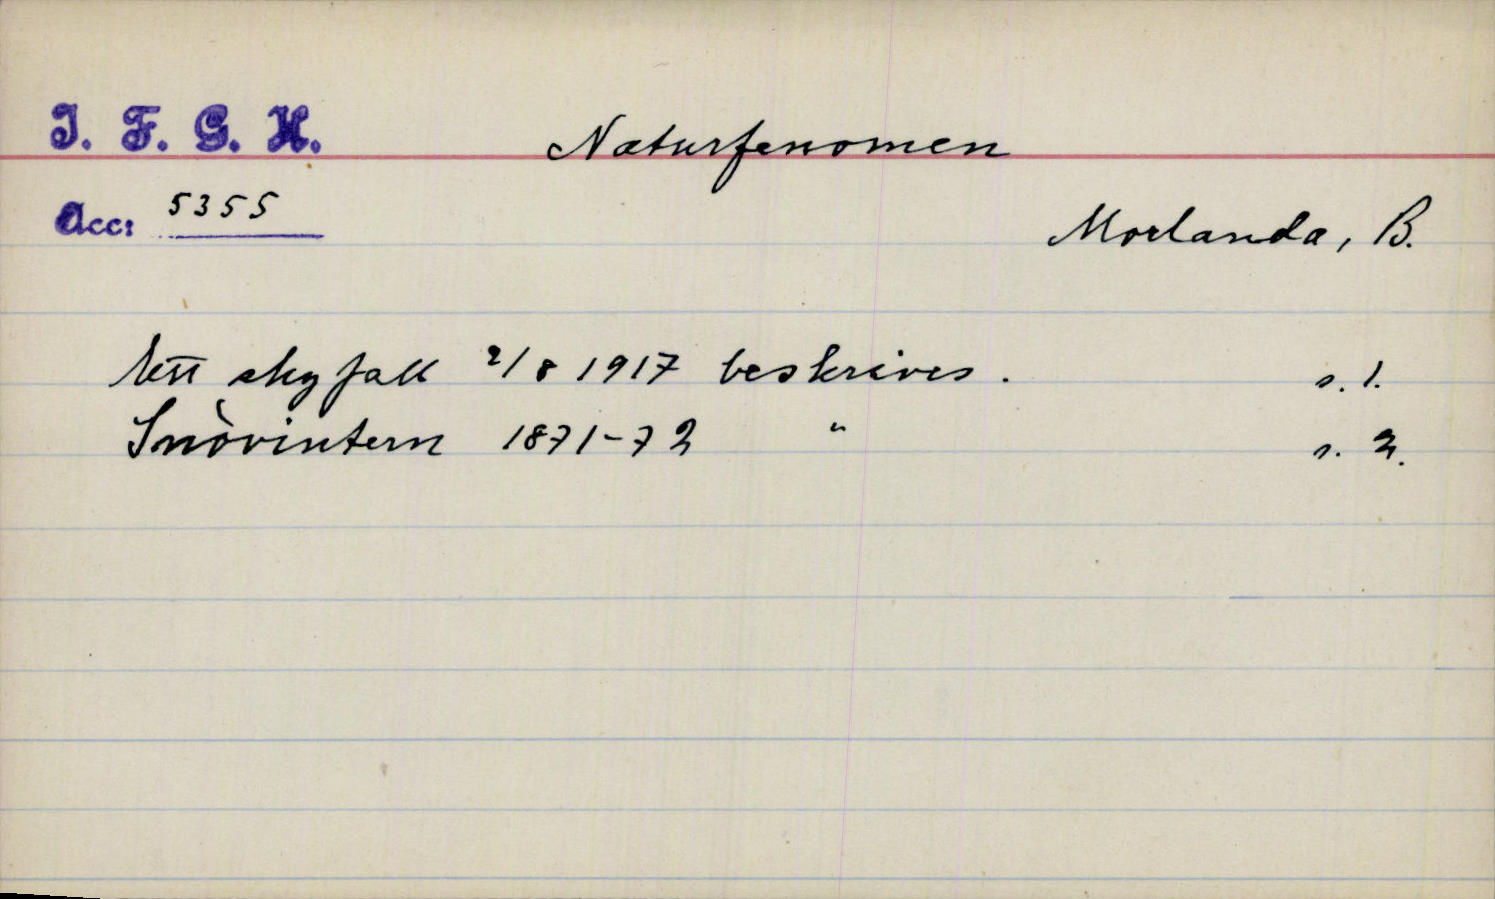 I. F. G. H.
Naturfenomen
Acc: 5355
Morlanda, B.
Ett skyfall 2/8 1917 beskrives. s. 1.
Snövintern 1871-72 " s. 2.